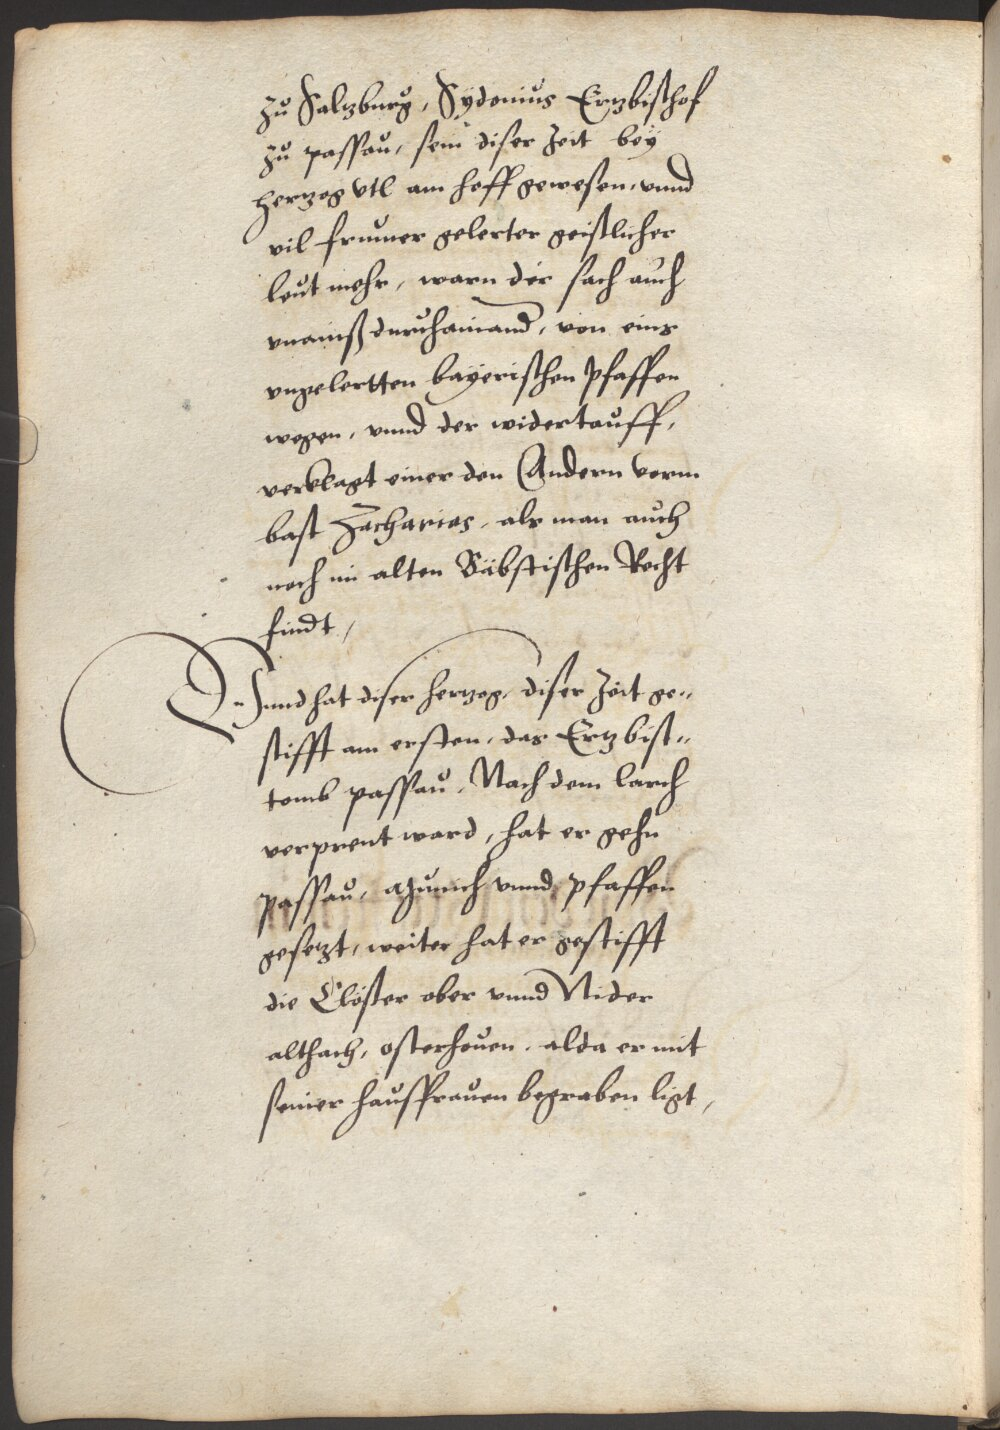 zu Saltzburg, Sydonius Ertzbischof
zu passau, sein diser Zeit bey
hertzog Vtl am hoff gewesen, vnnd
vil frumer gelerter geistlicher
leut mehr, warn der sach auch
vnainß durchainand, von eins
vngelertten bayerischen pfaffen
wegen, vnnd der widertauff,
verklagt einer den Andern vorm
bast Zacharias, als man auch
noch im alten Bäbstischen Recht
findt,
Vnnd hat diser hertzog, diser Zeit ge„
stifft am ersten, das Ertzbist„
tomb passau, Nach dem larch
verprent ward, hat er gehn
passau, Munich vnnd pfaffen
gesetzt, weiter hat er gestifft
die Clöster ober vnnd Nider
althach, osterhouen, alda er mit
seiner hausfrauen begraben ligt,